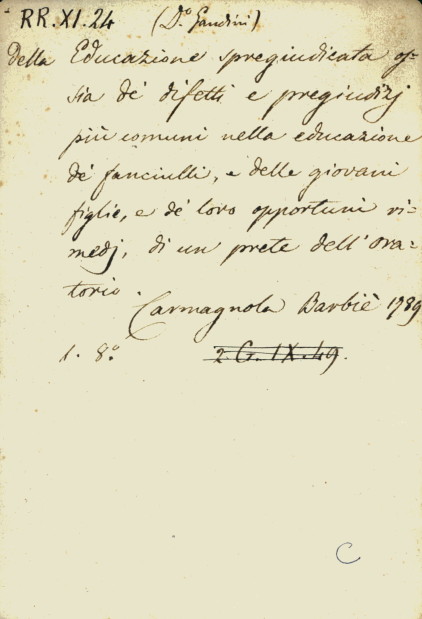 RR.XI.24 (D.° Gandini)
Della Educazione spregiudicata os-
sia de' difetti e pregiudizj
più comuni nella educazione
de' fanciulli, e delle giovani
figlie, e de' loro opportuni ri-
medj, di un prete dell'Ora-
torio.
Carmagnola Barbiè 1789
1. 8.° 2.G.IX.49.
C